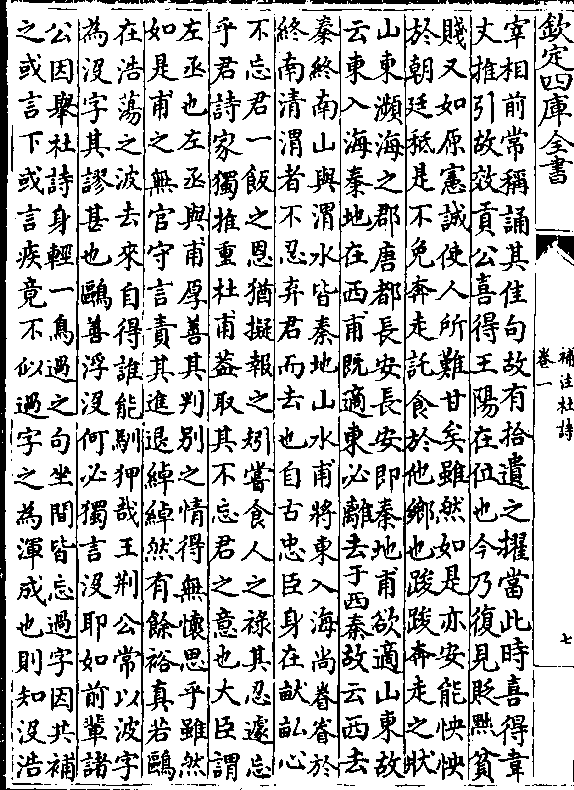 欽定四庫全書
補注杜詩
卷一
七
宰相前常稱誦其佳句故有拾遺之擢當此時喜得韋
丈推引故效貢公喜得王陽在位也今乃復見貶黜貧
賤又如原憲誠使人所難甘矣雖然如是亦安能怏怏
於朝廷秪是不免奔走託食於他鄉也踆踆奔走之狀
山東瀕海之郡唐都長安長安即秦地甫欲適山東故
云東入海秦地在西甫既適東必離去于西秦故云西去
秦終南山與渭水皆秦地山水甫將東入海尚眷眷於
終南清渭者不忍弃君而去也自古忠臣身在畎畝心
不忘君一飯之恩猶擬報之矧嘗食人之祿其忍遽忘
乎君詩家獨推重杜甫葢取其不忘君之意也大臣謂
左丞也左丞與甫厚善其判別之情得無懷思乎雖然
如是甫之無官守言責其進退綽綽然有餘裕真若鷗
在浩蕩之波去來自得誰能馴狎哉王荆公常以波字
為沒字其謬甚也鷗善浮沒何必獨言沒耶如前輩諸
公因舉杜詩身輕一鳥過之句坐間皆忘過字因共補
之或言下或言疾竟不似過字之為渾成也則知沒浩